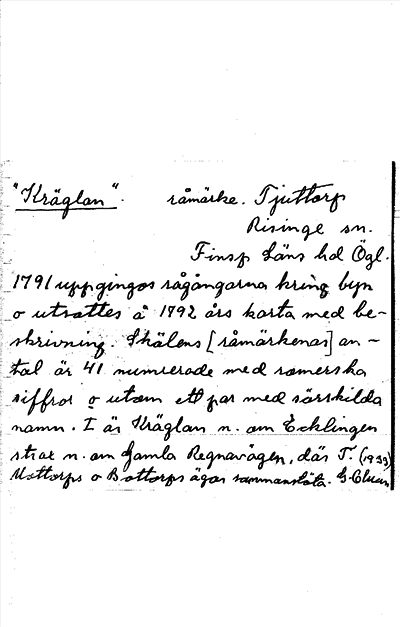 "Kräglan". råmärke. Tjuttorp
Risinge sn.
Finsp Läns hd Ögl.
1791 uppgingos rågångarna kring byn
o utsattes å 1792 års karta med be-
skrivning. Skälens [råmärkenas] an-
tal är 41 numrerade med romerska
siffror o utom ett par med särskilda
namn. I är Kräglan n. om Ecklingen
strax n. om gamla Regnavägen, där T. (1933)
Mottorps o Bottorps ägor sammanstöta.